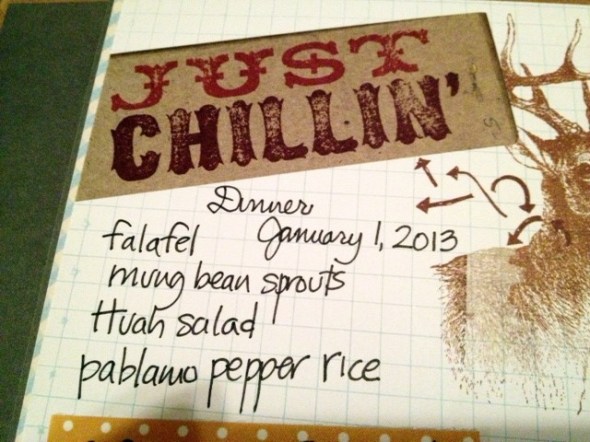 JUST
CHILLIN'
Dinner
falafel January 1, 2013
mung bean sprouts
Huah salad
pablamo pepper rice